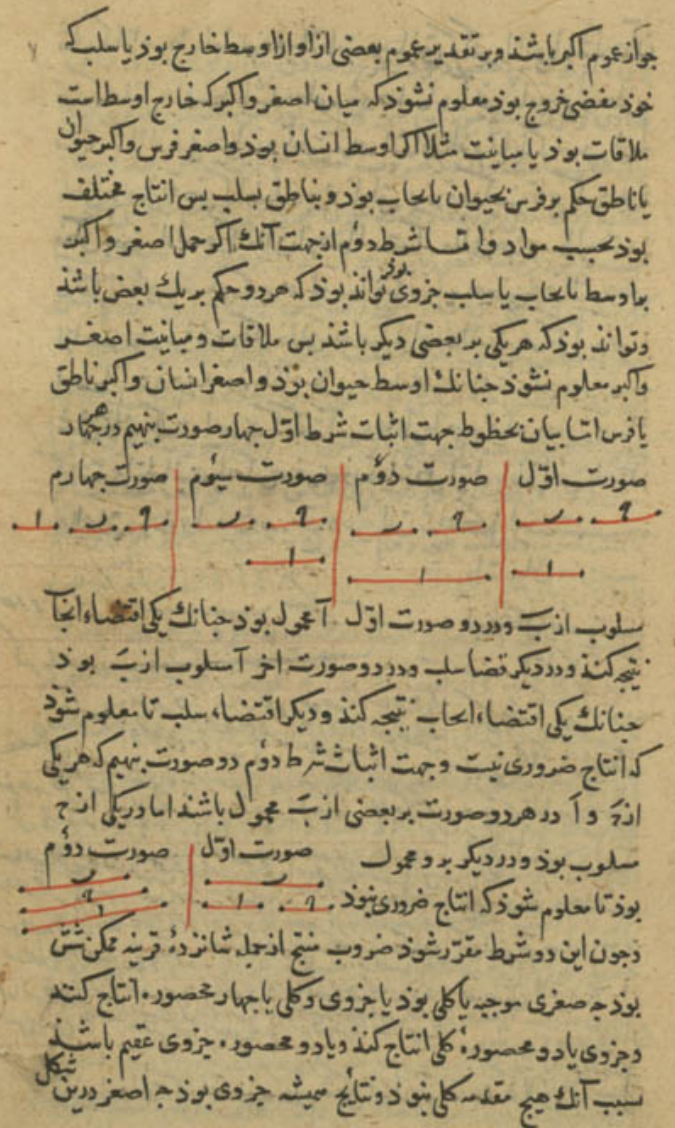 جواز عموم اکبر باشد و بر تقدیر عموم بعضی ازاو از اوسط خارج بوذ یا سلب که
خوذ مقضی خروج بوذ معلوم نشوذ که میان اصغر و اکبر که خارج اوسط است
ملاقات بوذ یا مباینت مثلا اکر اوسط انسان بوذ و اصغر فرس و اکبر حیوان
یا ناطق حکم بر فرس بحیوان بایجاب بوذ و بناطق بسلب بس انتاج مختلف
بوذ بحسب مواد و اما شرط دوم از جهت آنک اکر حمل اصغر و اکبر
بر اوسط بایجاب یا سلب جزوی بوذ تواند بوذ که هر دو حکم بر یک بعض باشذ
و تواند بوذ که هر یکی بر بعضی دیکر باشذ بس ملاقات و مباینت اصغر
و اکبر معلوم نشوذ جنانک اوسط حیوان بوذ و اصغر انسان و اکبر ناطق
یا فرس اما بیان بخطوط جهت اثبات شرط اول جهار صورت بنهیم در هر جهار
صورت اول صورت دوم صورت سیوم صورت جهارم
ج ب ج ب ج ب ج ب ا
ا ا ا
مسلوب از ب و در دو صورت اول آ محمول بوذ جنانک یکی اقتضاء ایجاب
نتیجه کنذ و در دیکر قضا سلب و در دو صورت اخر آ مسلوب از ب بوذ
جنانک یکی اقتضاء ایجاب نتیجه کنذ و دیکر اقتضاء سلب تا معلوم شوذ
که انتاج ضروری نیست و جهت اثبات شرط دوم دو صورت بنهیم که هر یکی
از ج و آ در هر دو صورت بر بعضی از ب محمول باشذ اما در یکی از ج
مسلوب بوذ و در دیکر برو محمول صورت اول صورت دوم
بوذ تا معلوم شوذ که انتاج ضروری نبوذ ج ا ب ب ج ا
و جون این دو شرط مقرر شوذ ضروب منتج از جمله شانزده قرینه ممکن شش
بوذ جه صغری موجبه یا کلی بوذ یا جزوی و کلی با جهار محصوره انتاج کند
و جزوی با دو محصوره کلی انتاج کنذ و با دو محصوره جزوی عقیم باشذ
بسبب آنک هیچ مقدمه کلی نبوذ و نتایج همیشه جزوی بوذ جه اصغر درین شکل